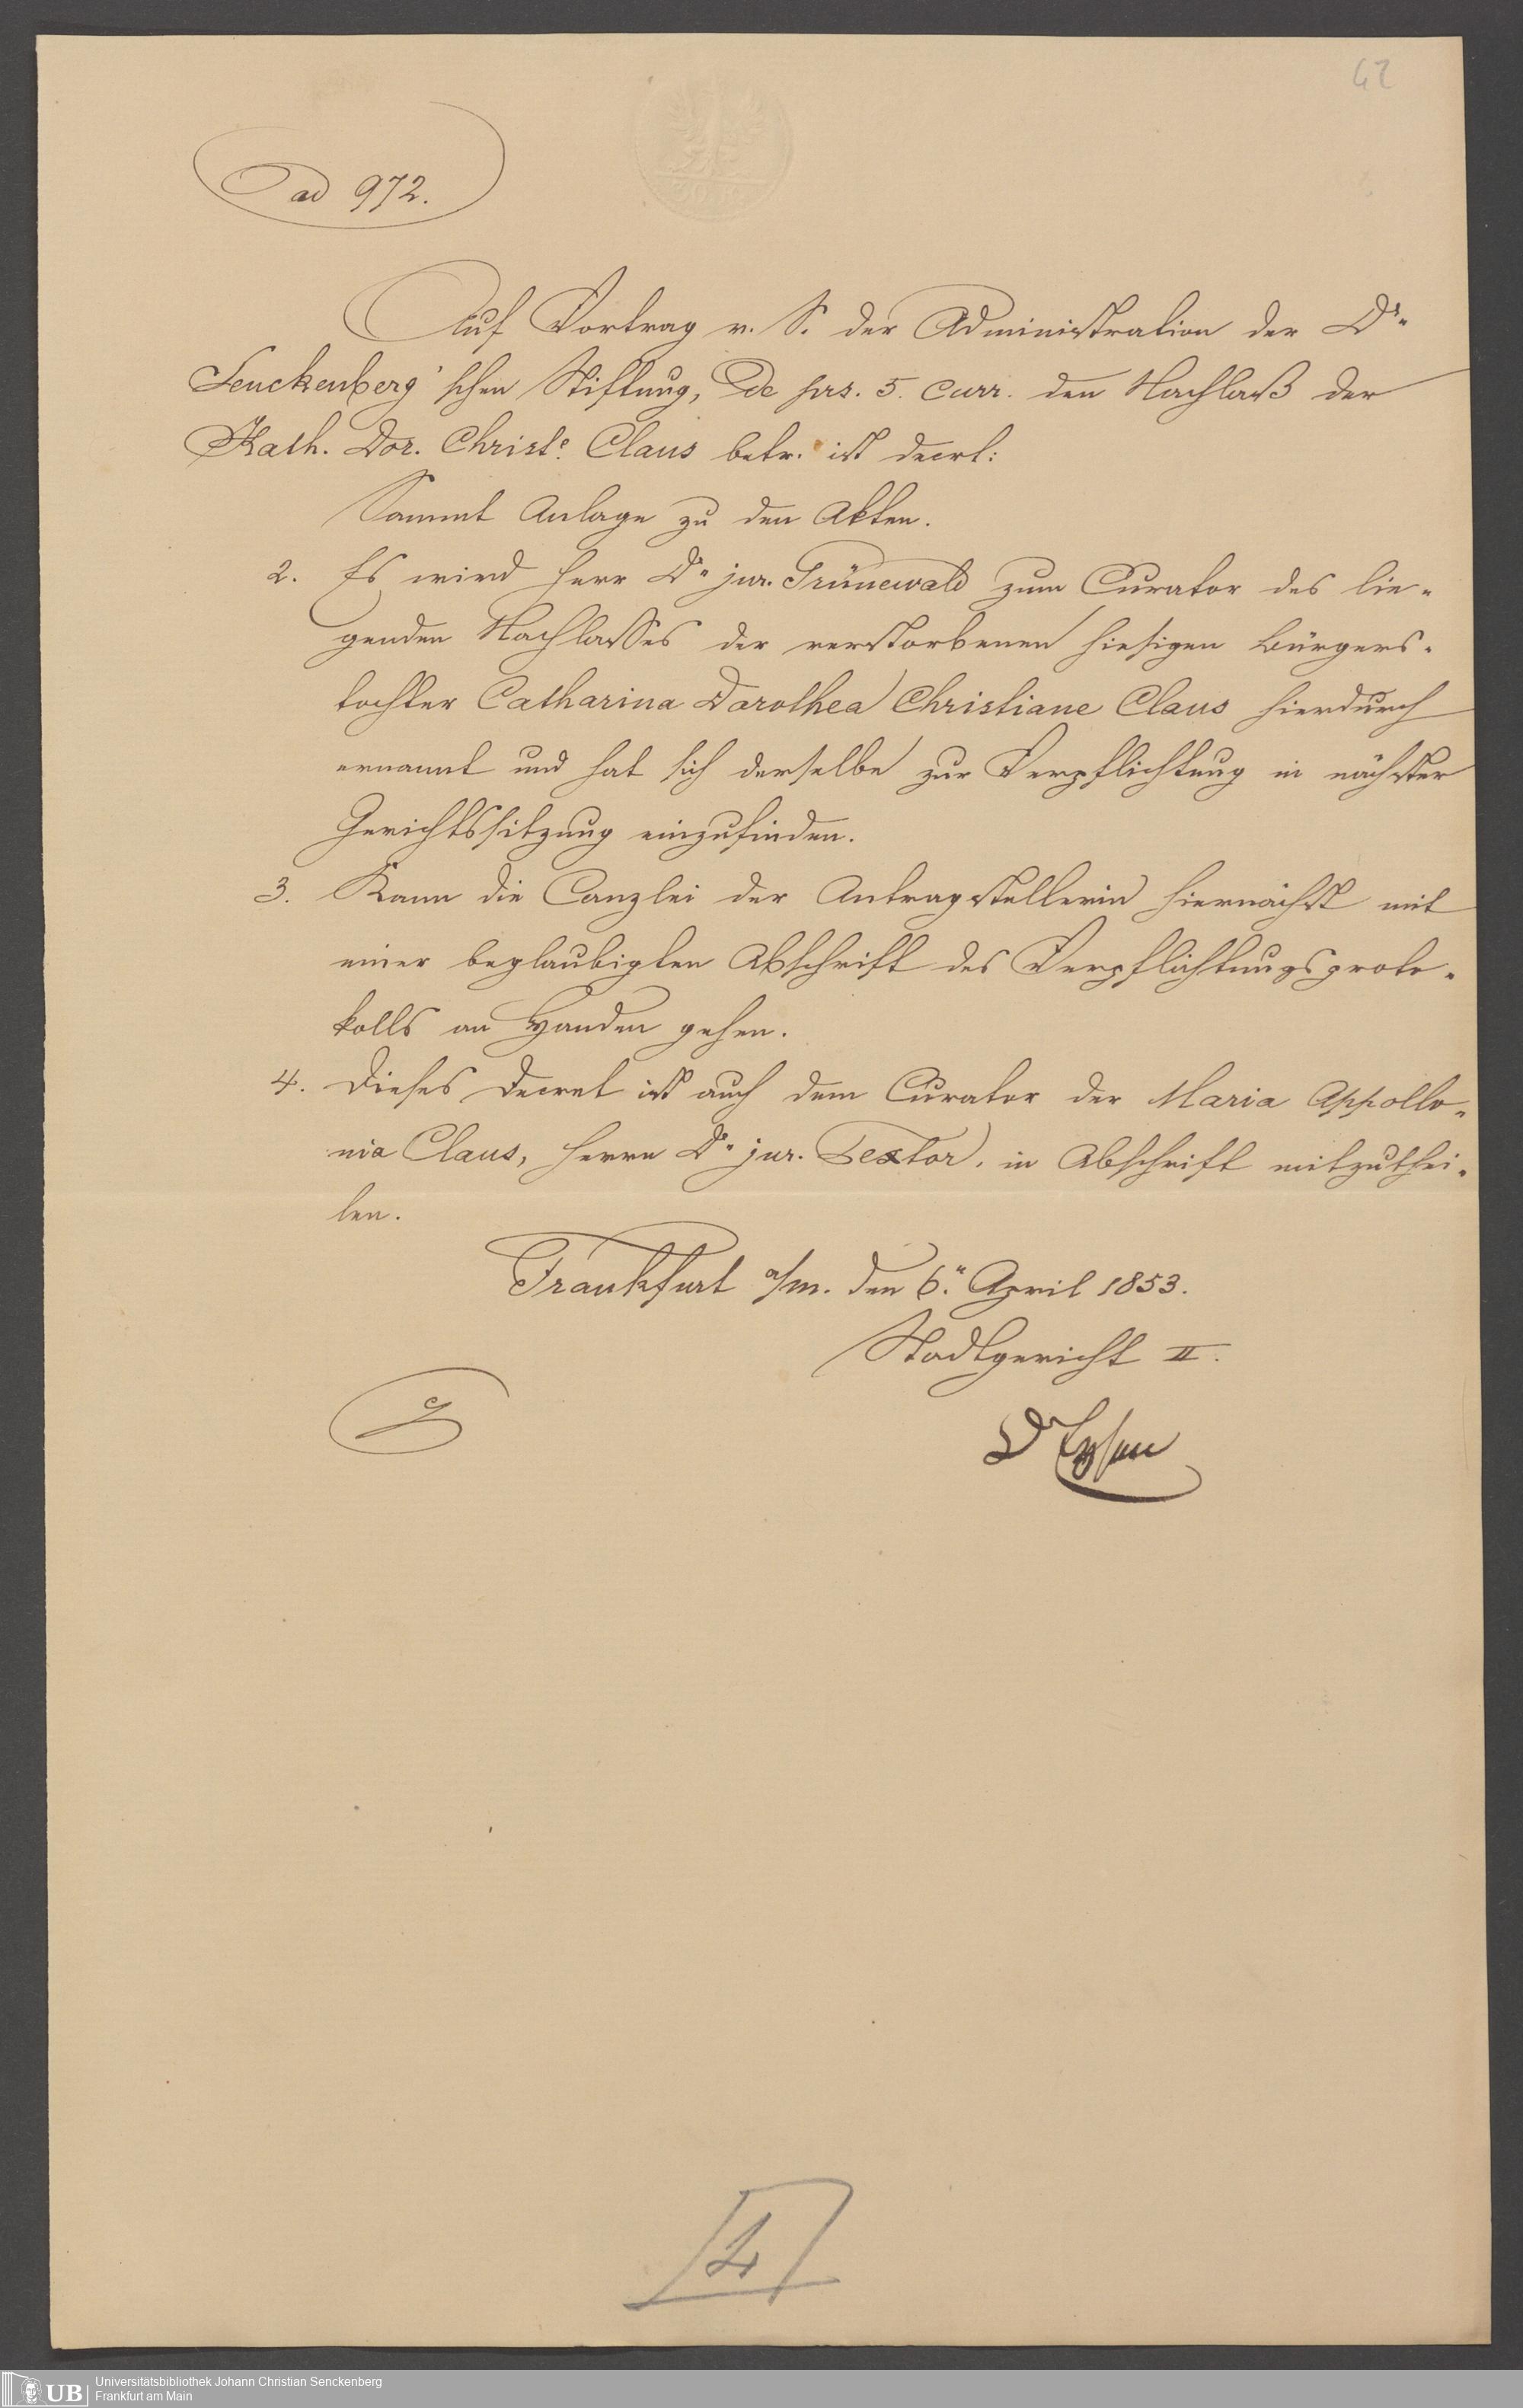 42
ad 972.
Auf Vortrag v. S. der Administration der Dr.
Senckenberg'schen Stiftung, de prs. 5. curr. den Nachlaß der
Kath. Dor. Christe. Claus betr. ist decrt:
Sammt Anlage zu den Akten.
2. Es wird Herr Dr. jur. Grünewald zum Curator des lie-
genden Nachlasses der verstorbenen hiesigen Bürgers-
tochter Catharina Darothea Christiane Claus hierdurch
ernannt und hat sich derselbe zur Verpflichtung in nächster
Gerichtssitzung einzufinden.
3. Kann die Canzlei der Antragstellerin hiernächst mit
einer beglaubigten Abschrift des Verpflichtungsproto-
kolls an Handen gehen.
4. Dieses Decret ist auch dem Curator der Maria Appollo-
nia Claus, Herrn Dr. jur. Textor, in Abschrift mitzuthei-
len.
Frankfurt a/m. den 6. April 1853.
Stadtgericht II.
Dr
4
UB
Universitätsbibliothek Johann Christian Senckenberg
Frankfurt am Main